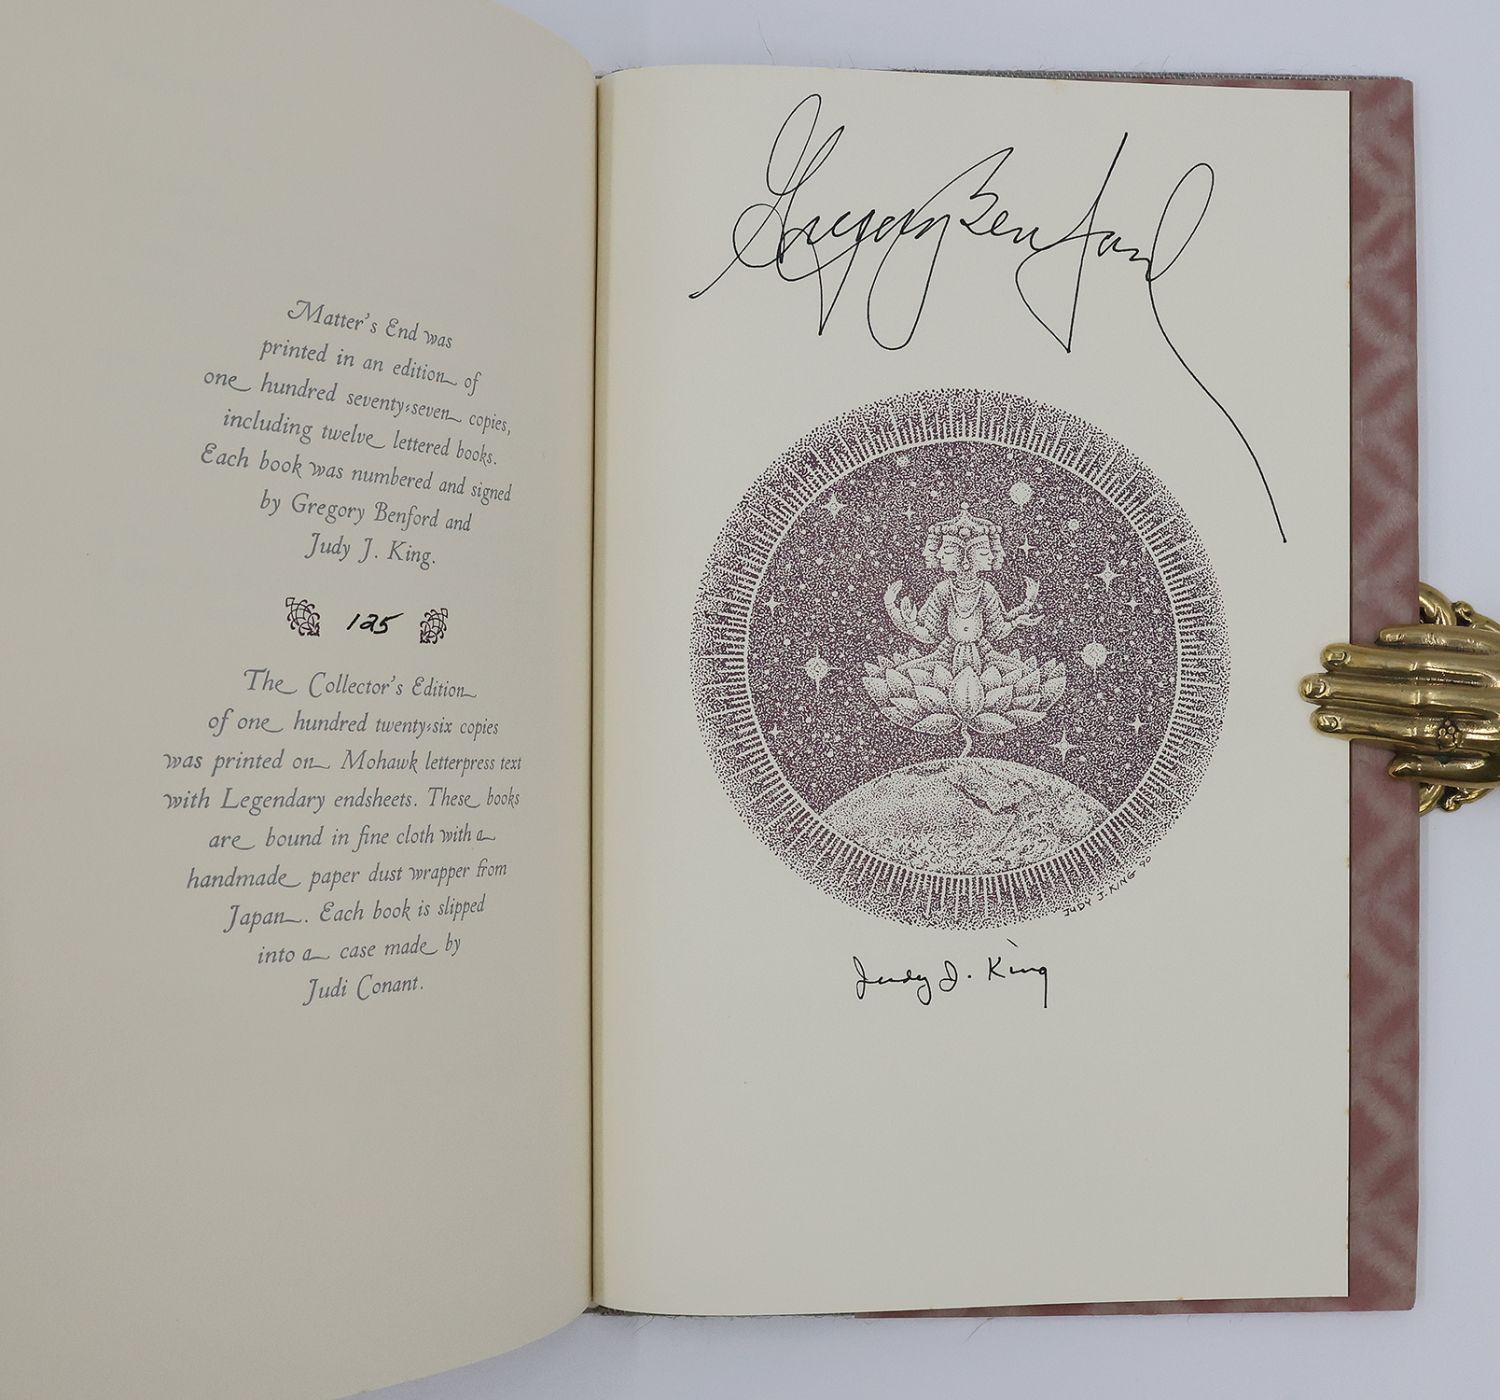 Matter's End was
printed in an edition of
one hundred seventy-seven copies,
including twelve lettered books.
Each book was numbered and signed
by Gregory Benford and
Judy J. King.
125
The Collector's Edition
of one hundred twenty-six copies
was printed on Mohawk letterpress text
with Legendary endsheets. These books
are bound in fine cloth with a
handmade paper dust wrapper from
Japan. Each book is slipped
into a case made by
Judi Conant.
Gregory Benford
JUDY J. KING 90
Judy J. King